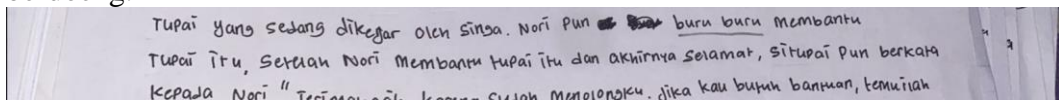 Tupai yang sedang dikejar oleh singa. Nori pun buru buru membantu
Tupai itu, setelah Nori membantu tupai itu dan akhirnya selamat, situpai pun berkata
kepada Nori " Jika kau butuh bantuan, temuilah